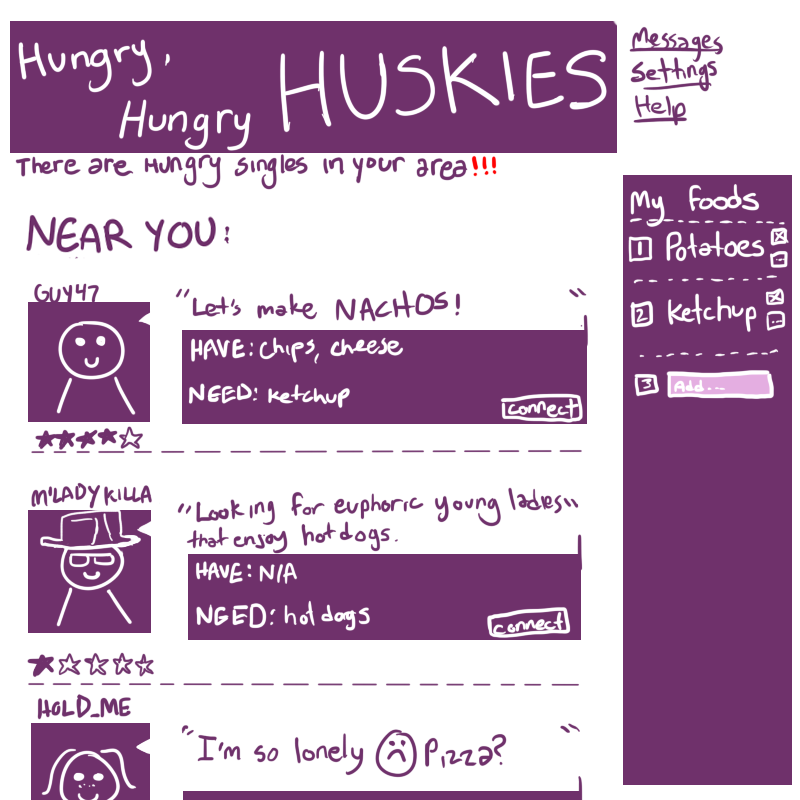 Hungry,
Hungry HUSKIES
There are Hungry singles in your area!!!
NEAR YOU:
GUY47
"Let's make NACHOS!"
HAVE: chips, cheese
NEED: ketchup
connect
M'LADYKILLA
"Looking for euphoric young ladies"
that enjoy hotdogs.
HAVE: N/A
NEED: hotdogs
connect
HOLD_ME
"I'm so lonely Pizza?"
Messages
Settings
Help
My Foods
1 Potatoes
2 Ketchup
3 Add...